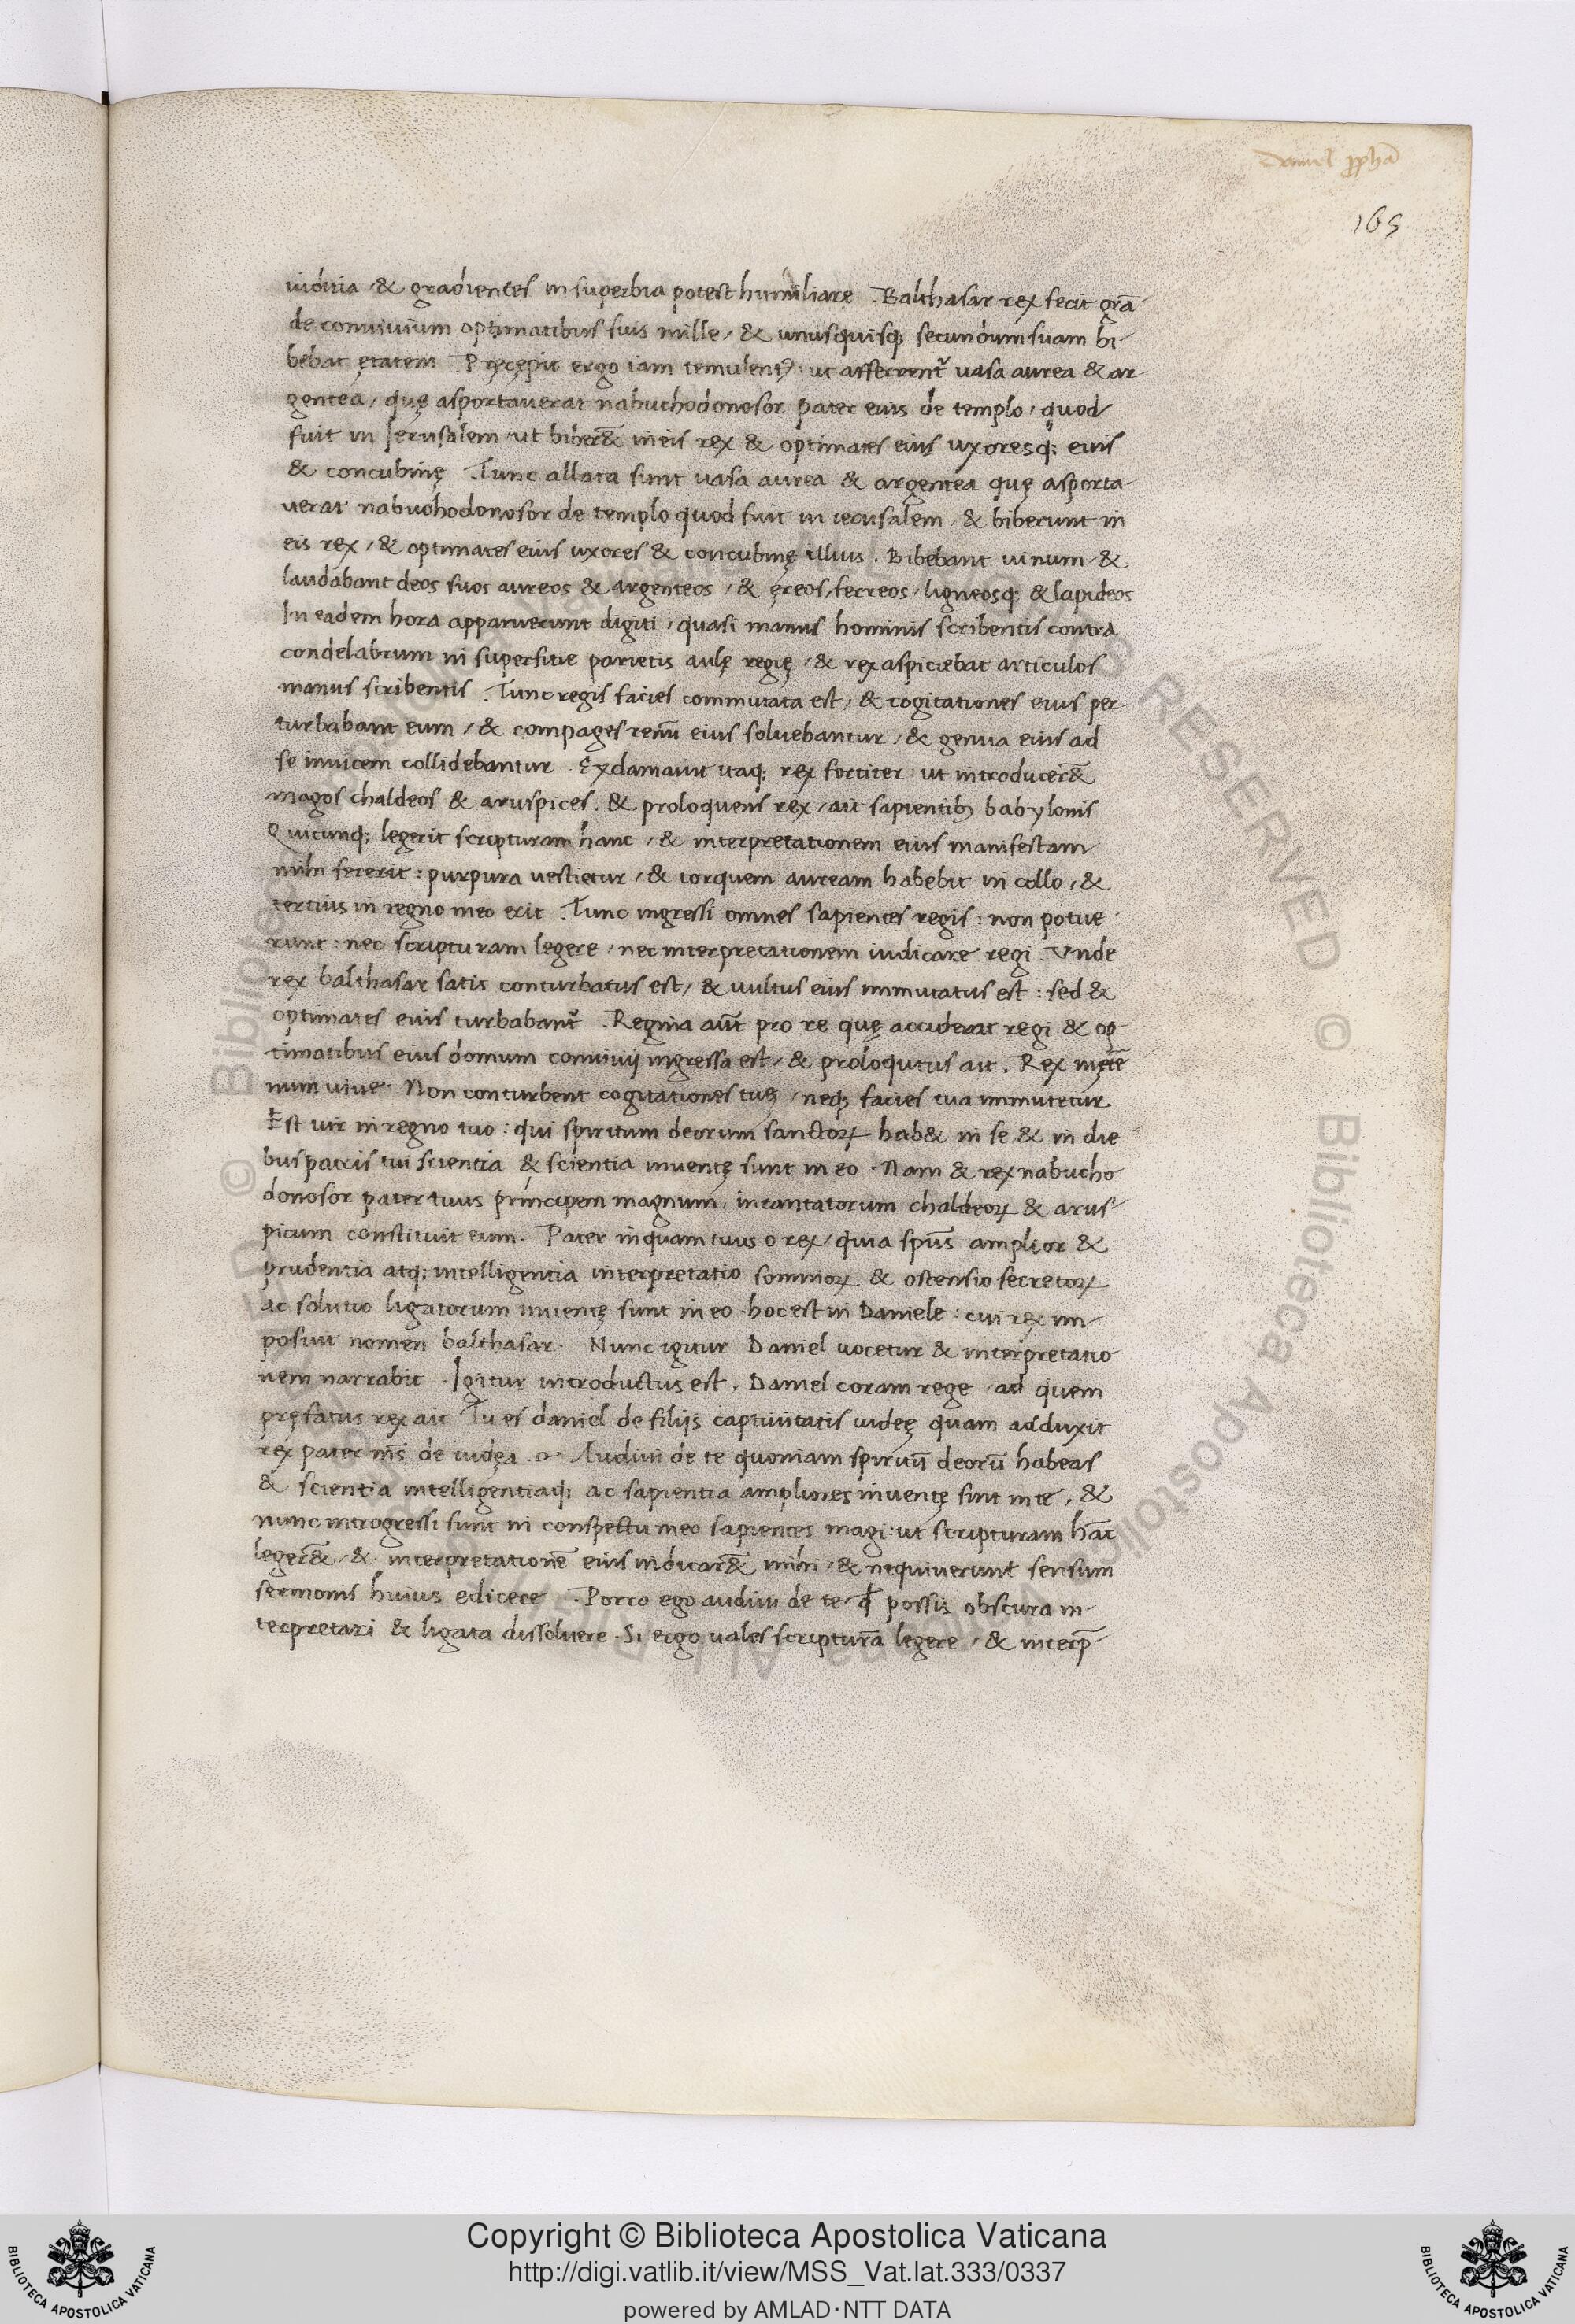 Daniel ꝓpha
165
iuditia / & gradientes in superbia potest humiliare . Balthasar rex fecit grā-
de conuiuium optimatibus suis mille / & unusquisq; secundum suam bi-
bebat ętatem . Pręcępit ergo iam temulentꝰ : ut afferrent᷑ uasa aurea & ar-
gentea / quę asportauerat nabuchodonosor pater eius de templo / quod
fuit in Jerusalem / ut biber& in eis rex & optimates eius uxoresq; eius
& concubinę . Tunc allata sunt uasa aurea & argentea quę asporta-
uerat nabuchodonosor de templo quod fuit in ierusalem / & biberunt in
eis rex / & optimates eius uxores & concubinę illius . Bibebant uinum / &
laudabant deos suos aureos & argenteos / & ęreos, ferreos / ligneosq; & lapideos
In eadem hora apparuerunt digiti / quasi manus hominis scribentis contra
condelabrum in superfitie parietis aulę regię / & rex aspiciebat articulos
manus scribentis . Tunc regis facies commutata est / & cogitationes eius per-
turbabant eum / & compages renū eius soluebantur / & genua eius ad
se inuicem collidebantur . Exclamauit itaq; rex fortiter : ut introducer&
magos chaldeos & aruspices . & proloquens rex / ait sapientibꝫ babylonis
Quicunq; legerit scripturam hanc / & interpretationem eius manifestam
mihi fecerit : purpura uestietur / & torquem auream habebit in collo / &
tertius in regno meo erit . Tunc ingressi omnes sapientes regis : non potue-
runt : nec scripturam legere / nec interpretationem iudicare regi . Unde
rex balthasar satis conturbatus est / & uultus eius immutatus est : sed &
optimates eius turbabant᷑ . Regina aūt pro re quę acciderat regi & op-
timatibus eius domum conuiuij ingressa est / & proloqutus ait . Rex in ęte-
num uiue . Non conturbent cogitationes tuę / neq; facies tua immutetur
Est uir in regno tuo : qui spiritum deorum sanctoꝝ hab& in se & in die
bus patris tui scientia & scientia inuentę sunt in eo . Nam & rex nabucho
donosor pater tuus principem magnum / incantatorum chaldeoꝝ & arus-
picum constituit eum . Pater inquam tuus o rex / quia spūs amplior &
prudentia atq; intelligentia interpretatio somnioꝝ & ostensio secretoꝝ
ac solutio ligatorum inuentę sunt in eo . hoc est in Daniele : cui rex im-
posuit nomen balthasar . Nunc igitur Daniel uocetur & interpretatio
nem narrabit . Igitur introductus est . Daniel coram rege / ad quem
pręfatus rex ait Tu es daniel de filijs captiuitatis iudeę quam adduxit
rex pater m̄s de iudęa . Audiui de te quoniam spirituū deorū habeas
& scientia intelligentiaq; ac sapientia ampliores inuentę sint in te . &
nunc introgressi sunt in conspectu meo sapientes magi : ut scripturam hāc
leger& / & interpretationē eius indicar& mihi / & nequiuerunt sensum
sermonis huius edicere . Porro ego audiui de te / ꝙ possis obscura in-
terpretari & ligata dissoluere . Si ergo uales scripturā legere / & interp̄-
Copyright © Biblioteca Apostolica Vaticana
http://digi.vatlib.it/view/MSS_Vat.lat.333/0337
powered by AMLAD·NTT DATA
BIBLIOTECA APOSTOLICA VATICANA
BIBLIOTECA APOSTOLICA VATICANA